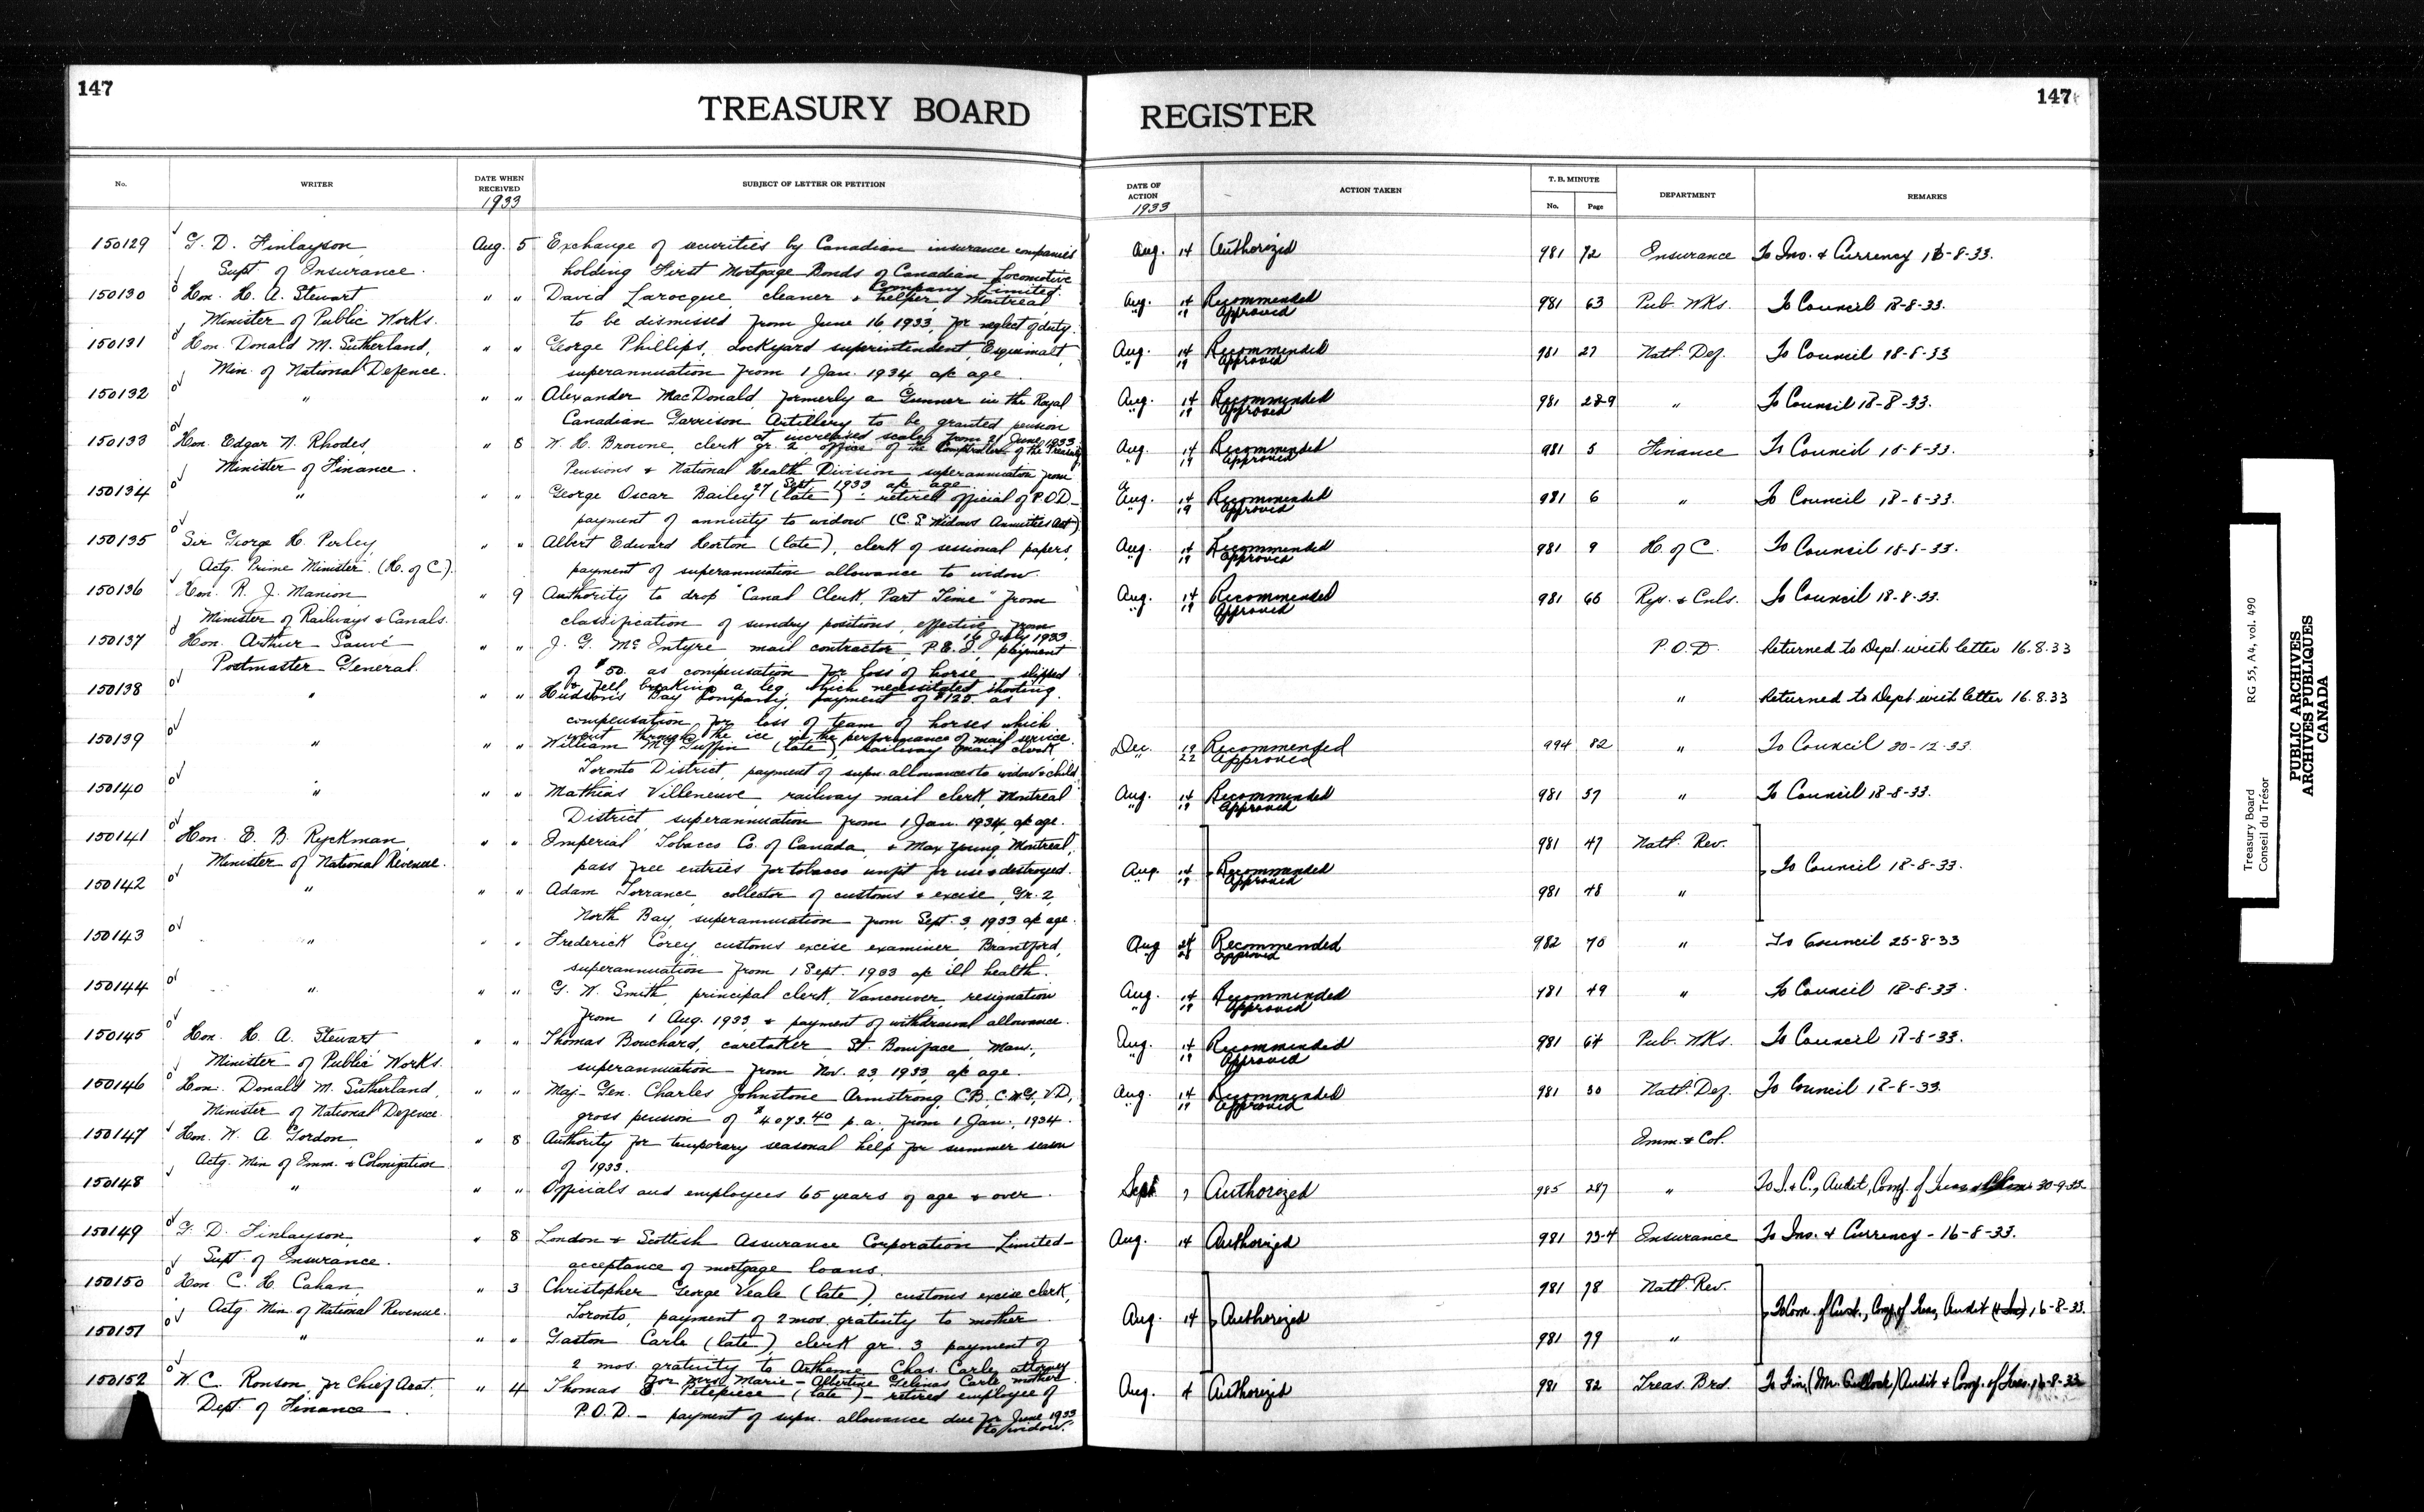 147
147
TREASURY BOARD REGISTER
No. WRITER DATE WHEN RECEIVED 1933 SUBJECT OF LETTER OR PETITION DATE OF ACTION 1933 ACTION TAKEN T. B. MINUTE No. Page DEPARTMENT REMARKS
150129 G. D. Finlayson, Aug. 5 Exchange of securities by Canadian insurance companies Aug. 14 Authorized 981 72 Insurance To Ins. & Currency 16-8-33.
Supt of Insurance. holding First Mortgage Bonds of Canadian Locomotive
Company Limited.
150130 Hon. H. A. Stewart " " David Larocque, cleaner & helper, Montreal Aug. 14 Recommended 981 63 Pub. Wks. To Council 18-8-33.
Minister of Public Works. to be dismissed from June 16, 1933, for neglect of duty. " 19 Approved
150131 Hon. Donald M. Sutherland, " " George Phillips, dockyard superintendent, Esquimalt Aug. 14 Recommended 981 27 Natl. Def. To Council 18-8-33
Min. of National Defence. superannuation from 1 Jan. 1934 a/c age. " 19 Approved
150132 " " " Alexander MacDonald formerly a Gunner in the Royal Aug. 14 Recommended 981 28-9 " To Council 18-8-33.
Canadian Garrison Artillery to be granted pension " 19 Approved
at increased scale from 21 June 1933
150133 Hon. Edgar N. Rhodes, " 8 W. H. Browne, clerk gr. 2 office of the Comptroller of the Treasury Aug. 14 Recommended 981 5 Finance To Council 18-8-33.
Minister of Finance. Pensions & National Health Division superannuation from " 19 Approved
27 Sept 1933 a/c age.
150134 " " " George Oscar Bailey (late) - retired official of P.O.D. - Aug. 14 Recommended 981 6 " To Council 18-8-33.
payment of annuity to widow (C.S. Widows Annuities Act) " 19 Approved
150135 Sir George H. Perley, " " Albert Edward Horton (late), clerk of sessional papers, Aug. 14 Recommended 981 9 H. of C. To Council 18-8-33.
Actg. Prime Minister. (H. of C.) payment of superannuation allowance to widow. " 19 Approved
150136 Hon. R. J. Manion " 9 Authority to drop "Canal Clerk, Part Time" from Aug. 14 Recommended 981 65 Rys. & Cnls. To Council 18-8-33.
Minister of Railways & Canals. classification of sundry positions, effective from " 19 Approved
16 July 1933.
150137 Hon. Arthur Sauvé " " J. G. McIntyre mail contractor, P.E.I. payment P.O.D. Returned to Dept. with letter 16.8.33
Postmaster General. of $50. as compensation for loss of horse - slipped
& fell breaking a leg, which necessitated shooting.
150138 " " " Hudson's Bay Company, payment of $125. as " Returned to Dept. with letter 16.8.33
compensation for loss of team of horses which
went through the ice in the performance of mail service.
150139 " " " William McGuffin (late), railway mail clerk Dec. 19 Recommended 994 82 " To Council 20-12-33.
Toronto District, payment of supn. allowances to widow & child. " 22 Approved
150140 " " " Mathias Villeneuve, railway mail clerk, Montreal Aug. 14 Recommended 981 57 " To Council 18-8-33.
District, superannuation from 1 Jan. 1934, a/c age. " 19 Approved
150141 Hon. E. B. Ryckman, " " Imperial Tobacco Co. of Canada, & Max Young, Montreal, 981 47 Natl. Rev.
Minister of National Revenue. pass free entries for tobacco unfit for use & destroyed. Aug. 14 Recommended To Council 18-8-33.
150142 " " " Adam Torrance, collector of customs & excise, Gr. 2, " 19 Approved 981 48 "
North Bay, superannuation from Sept. 3, 1933 a/c age.
150143 " " " Frederick Corey, customs excise examiner, Brantford, Aug 24 Recommended 982 70 " To Council 25-8-33
superannuation from 1 Sept. 1933 a/c ill health. " Approved
150144 " " " G. W. Smith, principal clerk, Vancouver, resignation Aug. 14 Recommended 981 49 " To Council 18-8-33.
from 1 Aug. 1933, & payment of withdrawal allowance. " 19 Approved
150145 Hon. H. A. Stewart, " " Thomas Bouchard, caretaker, St. Boniface, Man., Aug. 14 Recommended 981 64 Pub. Wks. To Council 18-8-33.
Minister of Public Works. superannuation from Nov. 23, 1933, a/c age. " 19 Approved
150146 Hon. Donald M. Sutherland, " " Maj-Gen. Charles Johnstone Armstrong, C.B., C.M.G., V.D., Aug. 14 Recommended 981 30 Natl. Def. To Council 18-8-33.
Minister of National Defence gross pension of $4073.40 p.a., from 1 Jan., 1934. " 19 Approved
150147 Hon. W. A. Gordon, " 8 Authority for temporary seasonal help for summer season Imm. & Col.
Actg. Min of Imm. & Colonization of 1933.
150148 " " " Officials and employees 65 years of age & over. Sept 7 Authorized 985 287 " To I. & C., Audit, Comp. of Treas 30-9-33
150149 G. D. Finlayson, " 8 London & Scottish Assurance Corporation Limited - Aug. 14 Authorized 981 73-4 Insurance To Ins. & Currency - 16-8-33.
Supt of Insurance. acceptance of mortgage loans.
150150 Hon. C. H. Cahan, " 3 Christopher George Veale (late), customs excise clerk, 981 78 Natl. Rev.
Actg. Min. of National Revenue. Toronto, payment of 2 mos. gratuity to mother. Aug. 14 Authorized To Com. of Cust., Comp. of Treas, Audit 16-8-33.
150151 " " " Gaston Carle (late), clerk gr. 3, payment of 981 79 "
2 mos. gratuity to Artheme Chas. Carle, attorney
for Mrs. Marie-Albertine Gelinas Carle, mother.
150152 W. C. Ronson, for Chief Acct. " 4 Thomas E. Petepiece (late) - retired employee of Aug. 4 Authorized 981 82 Treas. Brd. To Fin. (Mr. Cullock) Audit & Comp. of Treas. 16-8-33
Dept. of Finance P.O.D. - payment of supn. allowance due for June 1933
to widow.
Treasury Board RG 55, A4, vol. 490
Conseil du Trésor
PUBLIC ARCHIVES
ARCHIVES PUBLIQUES
CANADA